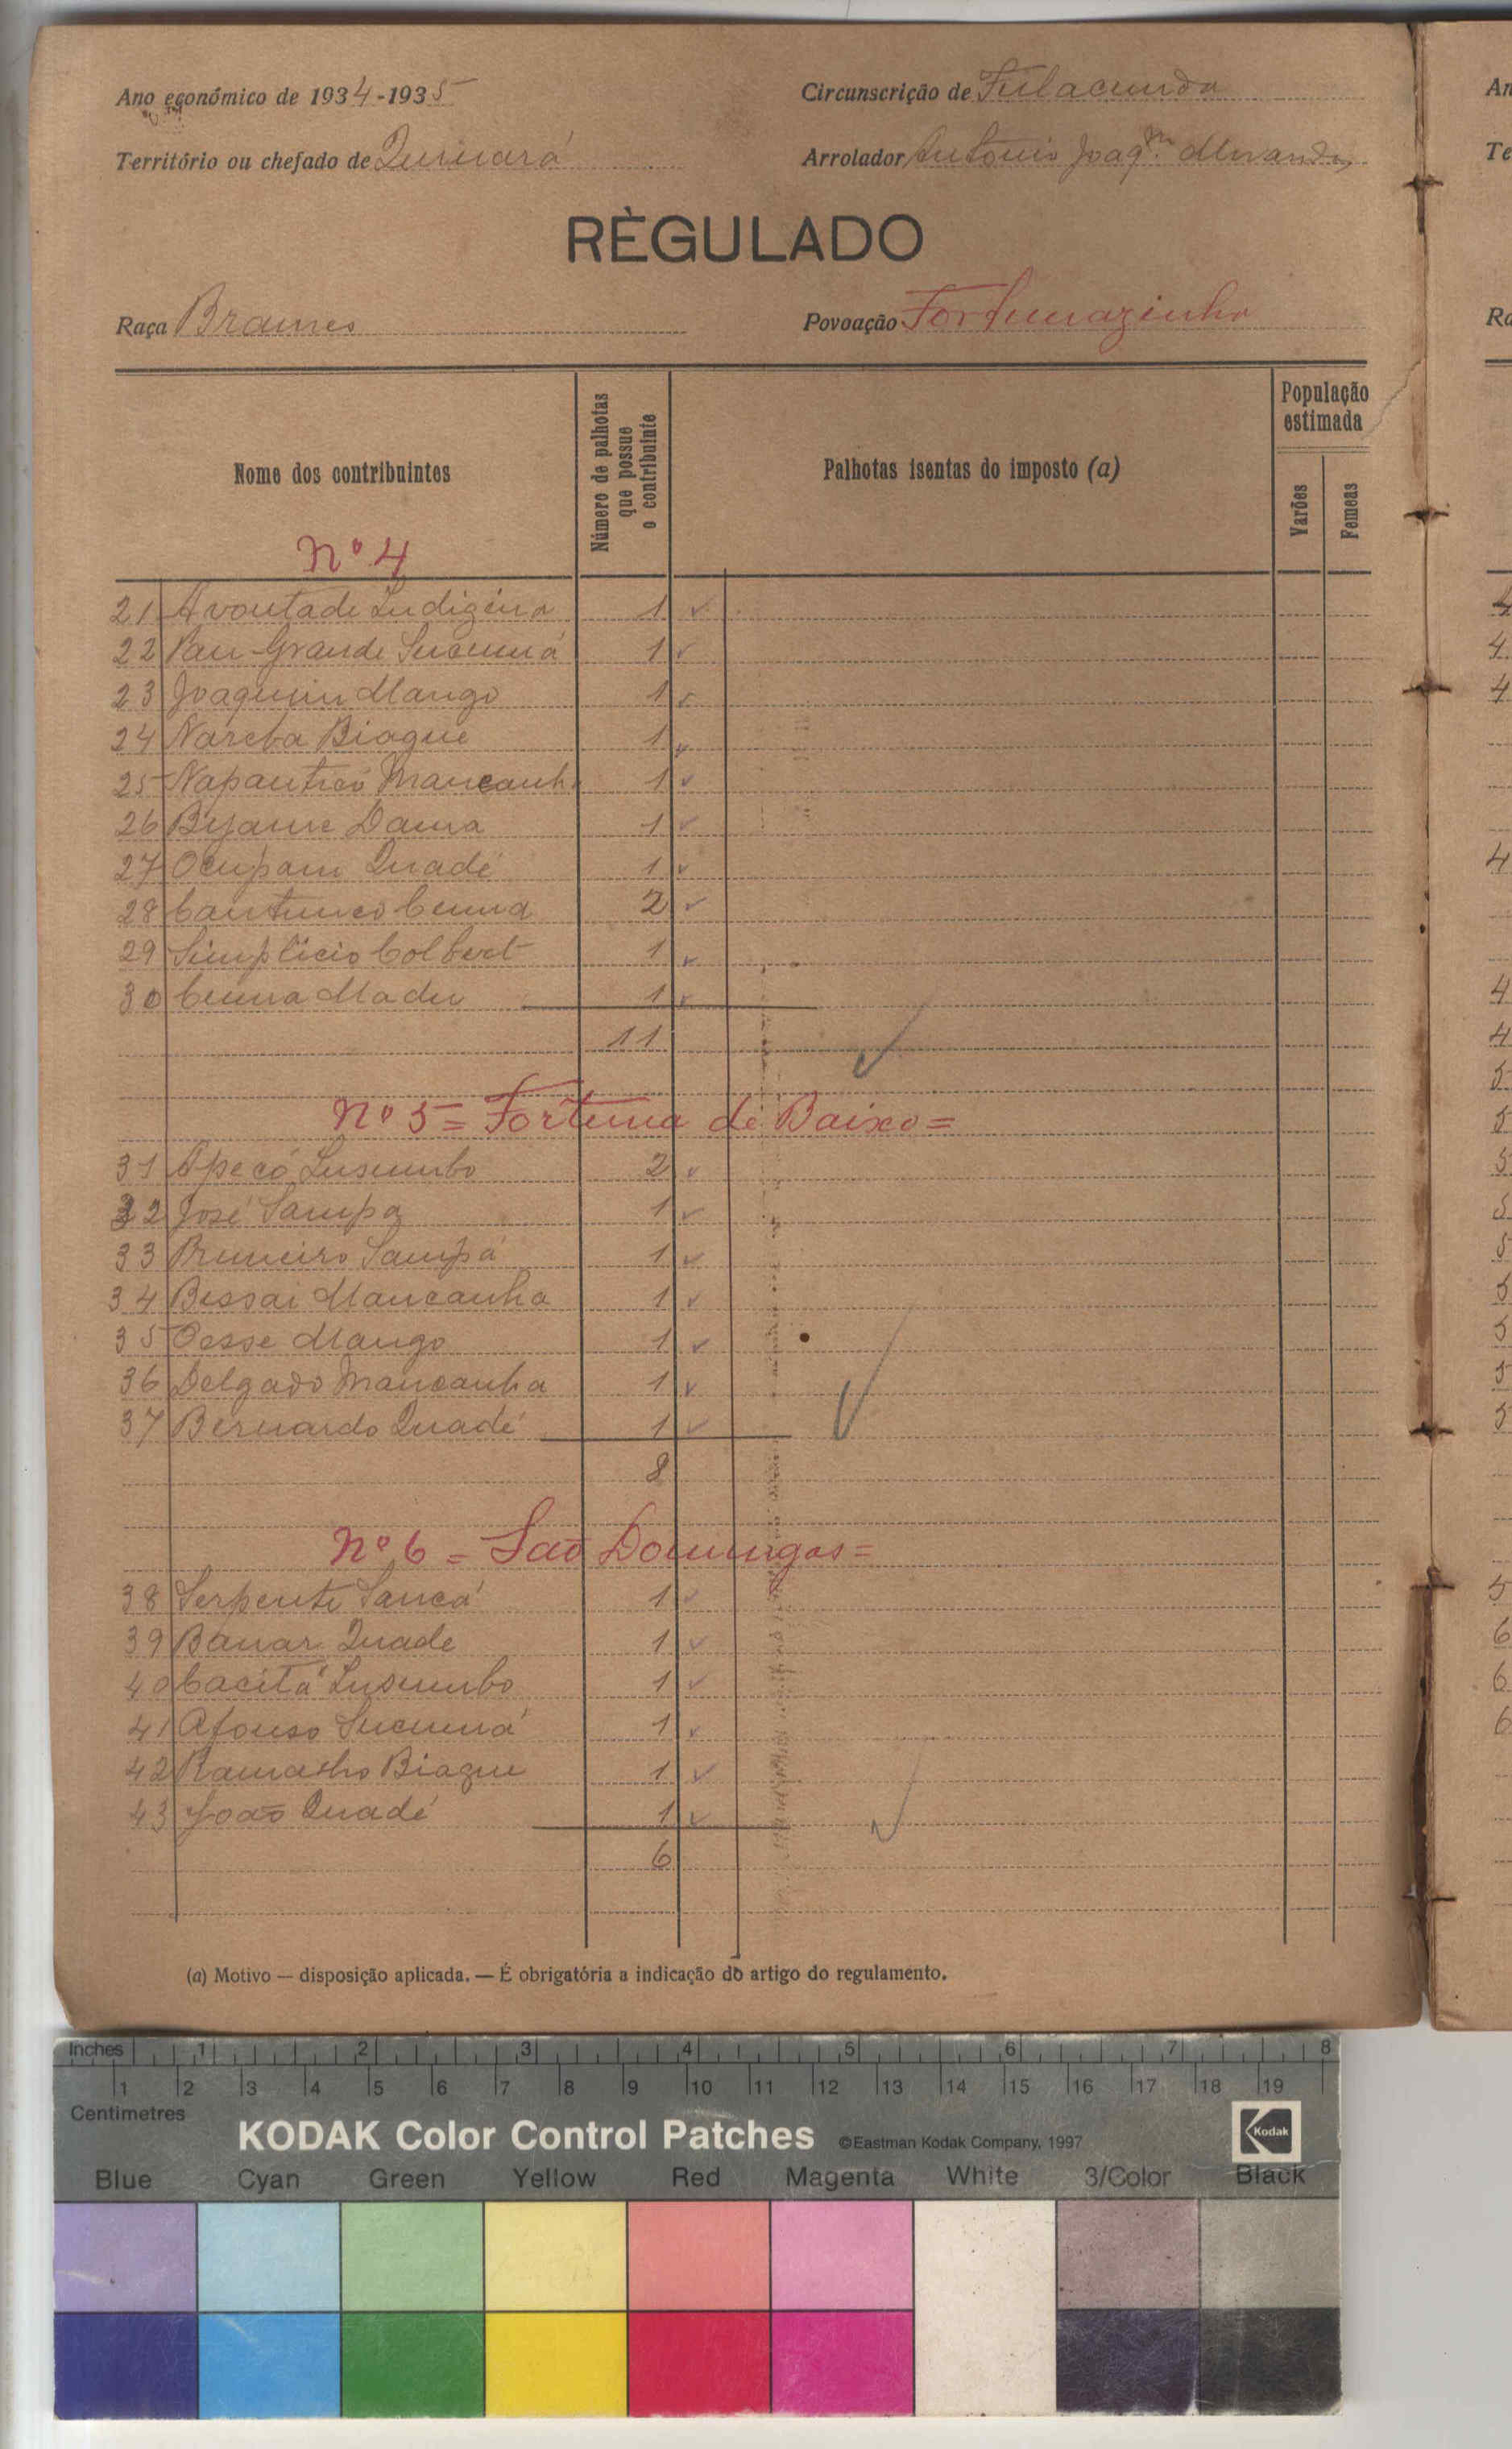 Ano económico de 1934-1935
Circunscrição de Fulacunda
Território ou chefado de Quinará
Arrolador António Joaq.m Miranda
RÈGULADO
Raça Brames
Povoação Fortunazinho
Nome dos contribuintes
Número de palhotas que possue o contribuinte
Palhotas isentas do imposto (a)
População estimada
Varões
Femeas
Nº 4
21 Avontade Indigena 1
22 Pau Grande Sucumá 1
23 Joaquim Mango 1
24 Nareba Biague 1
25 Napantricó Mancanh 1
26 Byame Dama 1
27 Ocupam Quadé 1
28 Cantunco Cumá 2
29 Simplicio Colbert 1
30 Cunna Madu 1
11
Nº 5 = Fortuna de Baixo =
31 Apecó Lusumbo 2
32 José Sampa 1
33 Primeiro Sampá 1
34 Bissai Mancanha 1
35 Oesse Mango 1
36 Delgado Mancanha 1
37 Bernardo Quadé 1
8
Nº 6 = São Domingos =
38 Serpente Sancá 1
39 Banar Quade 1
40 Cacitá Lusumbo 1
41 Afonso Sucumá 1
42 Ramalho Biague 1
43 João Quadé 1
6
(a) Motivo — disposição aplicada. — É obrigatória a indicação do artigo do regulamento.
Inches 1 2 3 4 5 6 7 8
1 2 3 4 5 6 7 8 9 10 11 12 13 14 15 16 17 18 19
Centimetres
KODAK Color Control Patches ©Eastman Kodak Company, 1997 Kodak
Blue Cyan Green Yellow Red Magenta White 3/Color Black